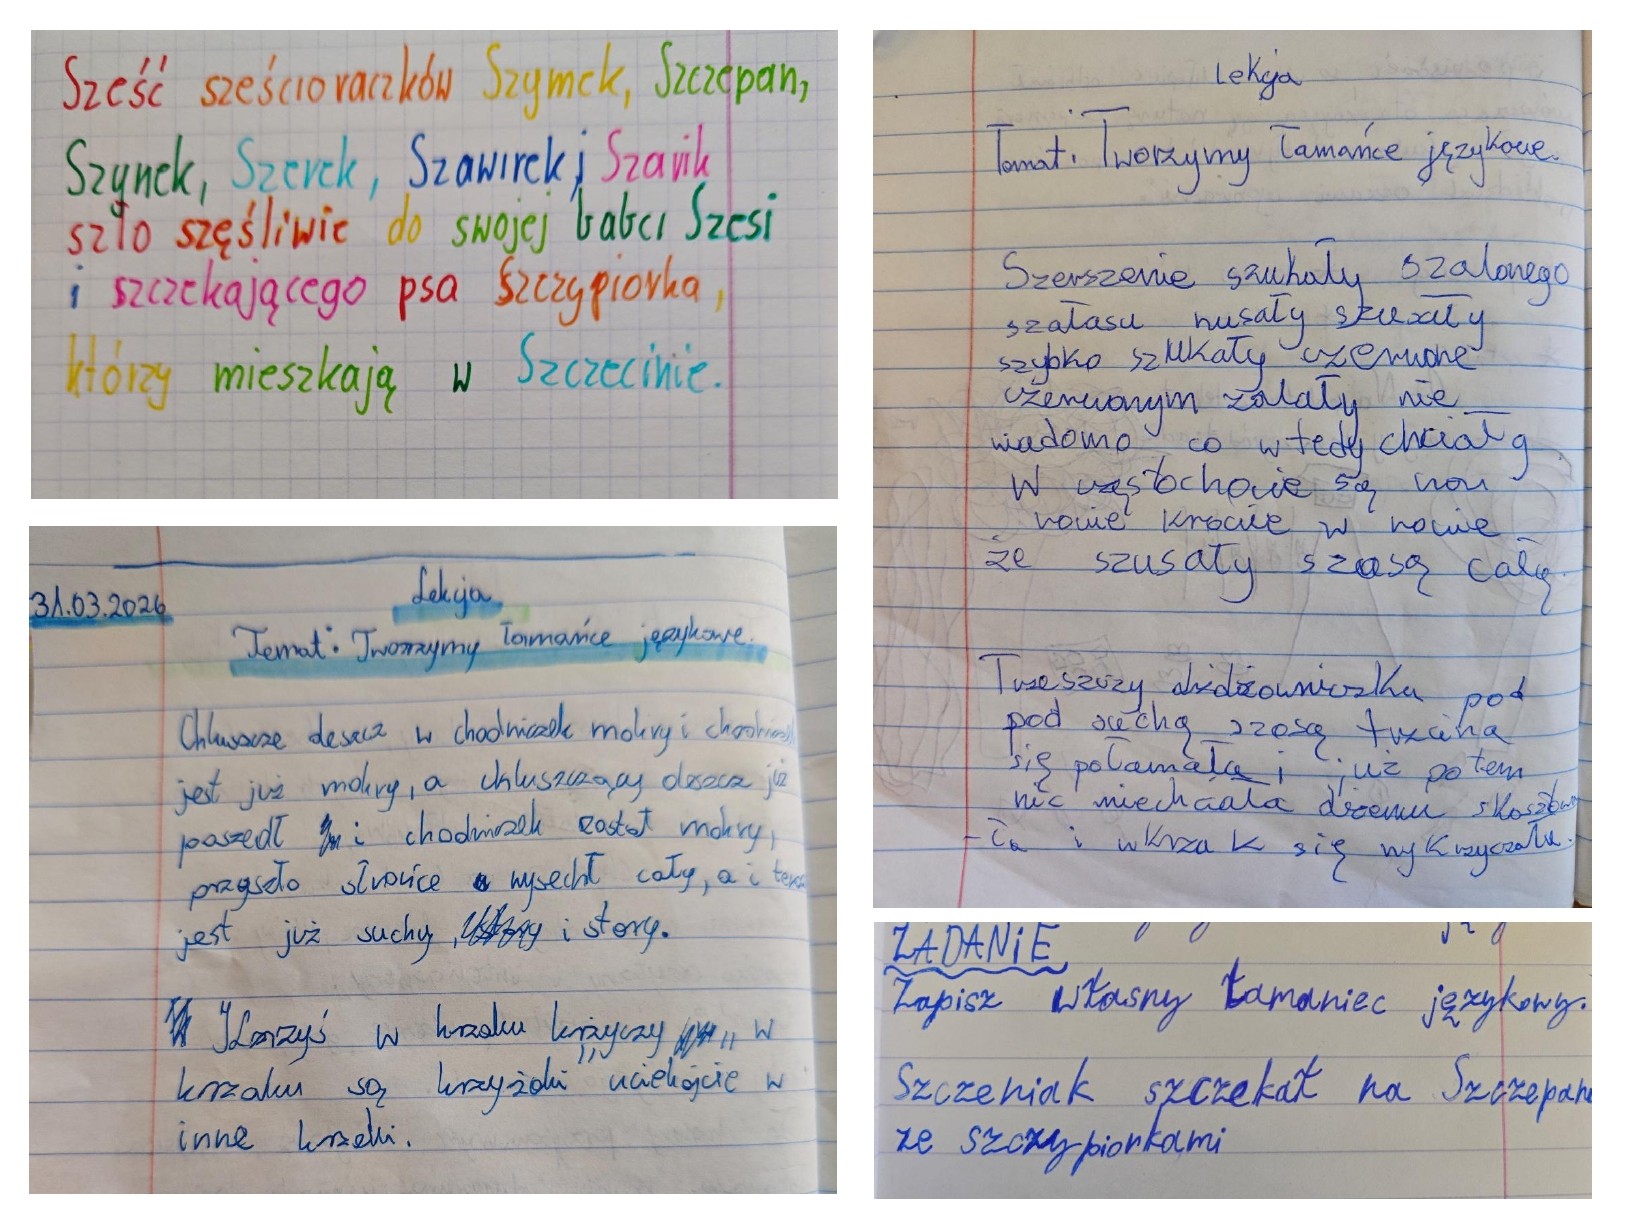 Sześć sześcioraczków Szymek, Szczepan,
Szynek, Szerek, Szawirek i Szarik
szło szęśliwie do swojej babci Szesi
i szczekającego psa Szczypiorka,
którzy mieszkają w Szczecinie.
31.03.2026
Lekcja
Temat: Tworzymy łamańce językowe.
Chluszcze deszcz w chodniczek mokry i chodniczek
jest już mokry, a chluszczący deszcz już
poszedł i chodniczek został mokry,
przyszło słońce wysechł cały, a i teraz
jest już suchy, i stary.
w krzaku krzyczy „ w
krzaku są krzyżaki" uciekajcie w
inne krzaki.
Lekcja
Temat: Tworzymy łamańce językowe.
Szerszenie szukały szalonego
szałasu szuszały
szybko szukały czerwone
czerwonym zalały nie
wiadomo co wtedy chciały
W częstochowie są
rowie krowie w rowie
że szusały szosą całą.
Trzeszczy dżdżowniczka pod
pod suchą szosą trzcina
się połamała i już potem
nic niechciała dżemu skosztowa
-ła i w krzak się wykrzyczała.
ZADANIE
Zapisz własny łamaniec językowy.
Szczeniak szczekał na Szczepana
ze szczypiorkami